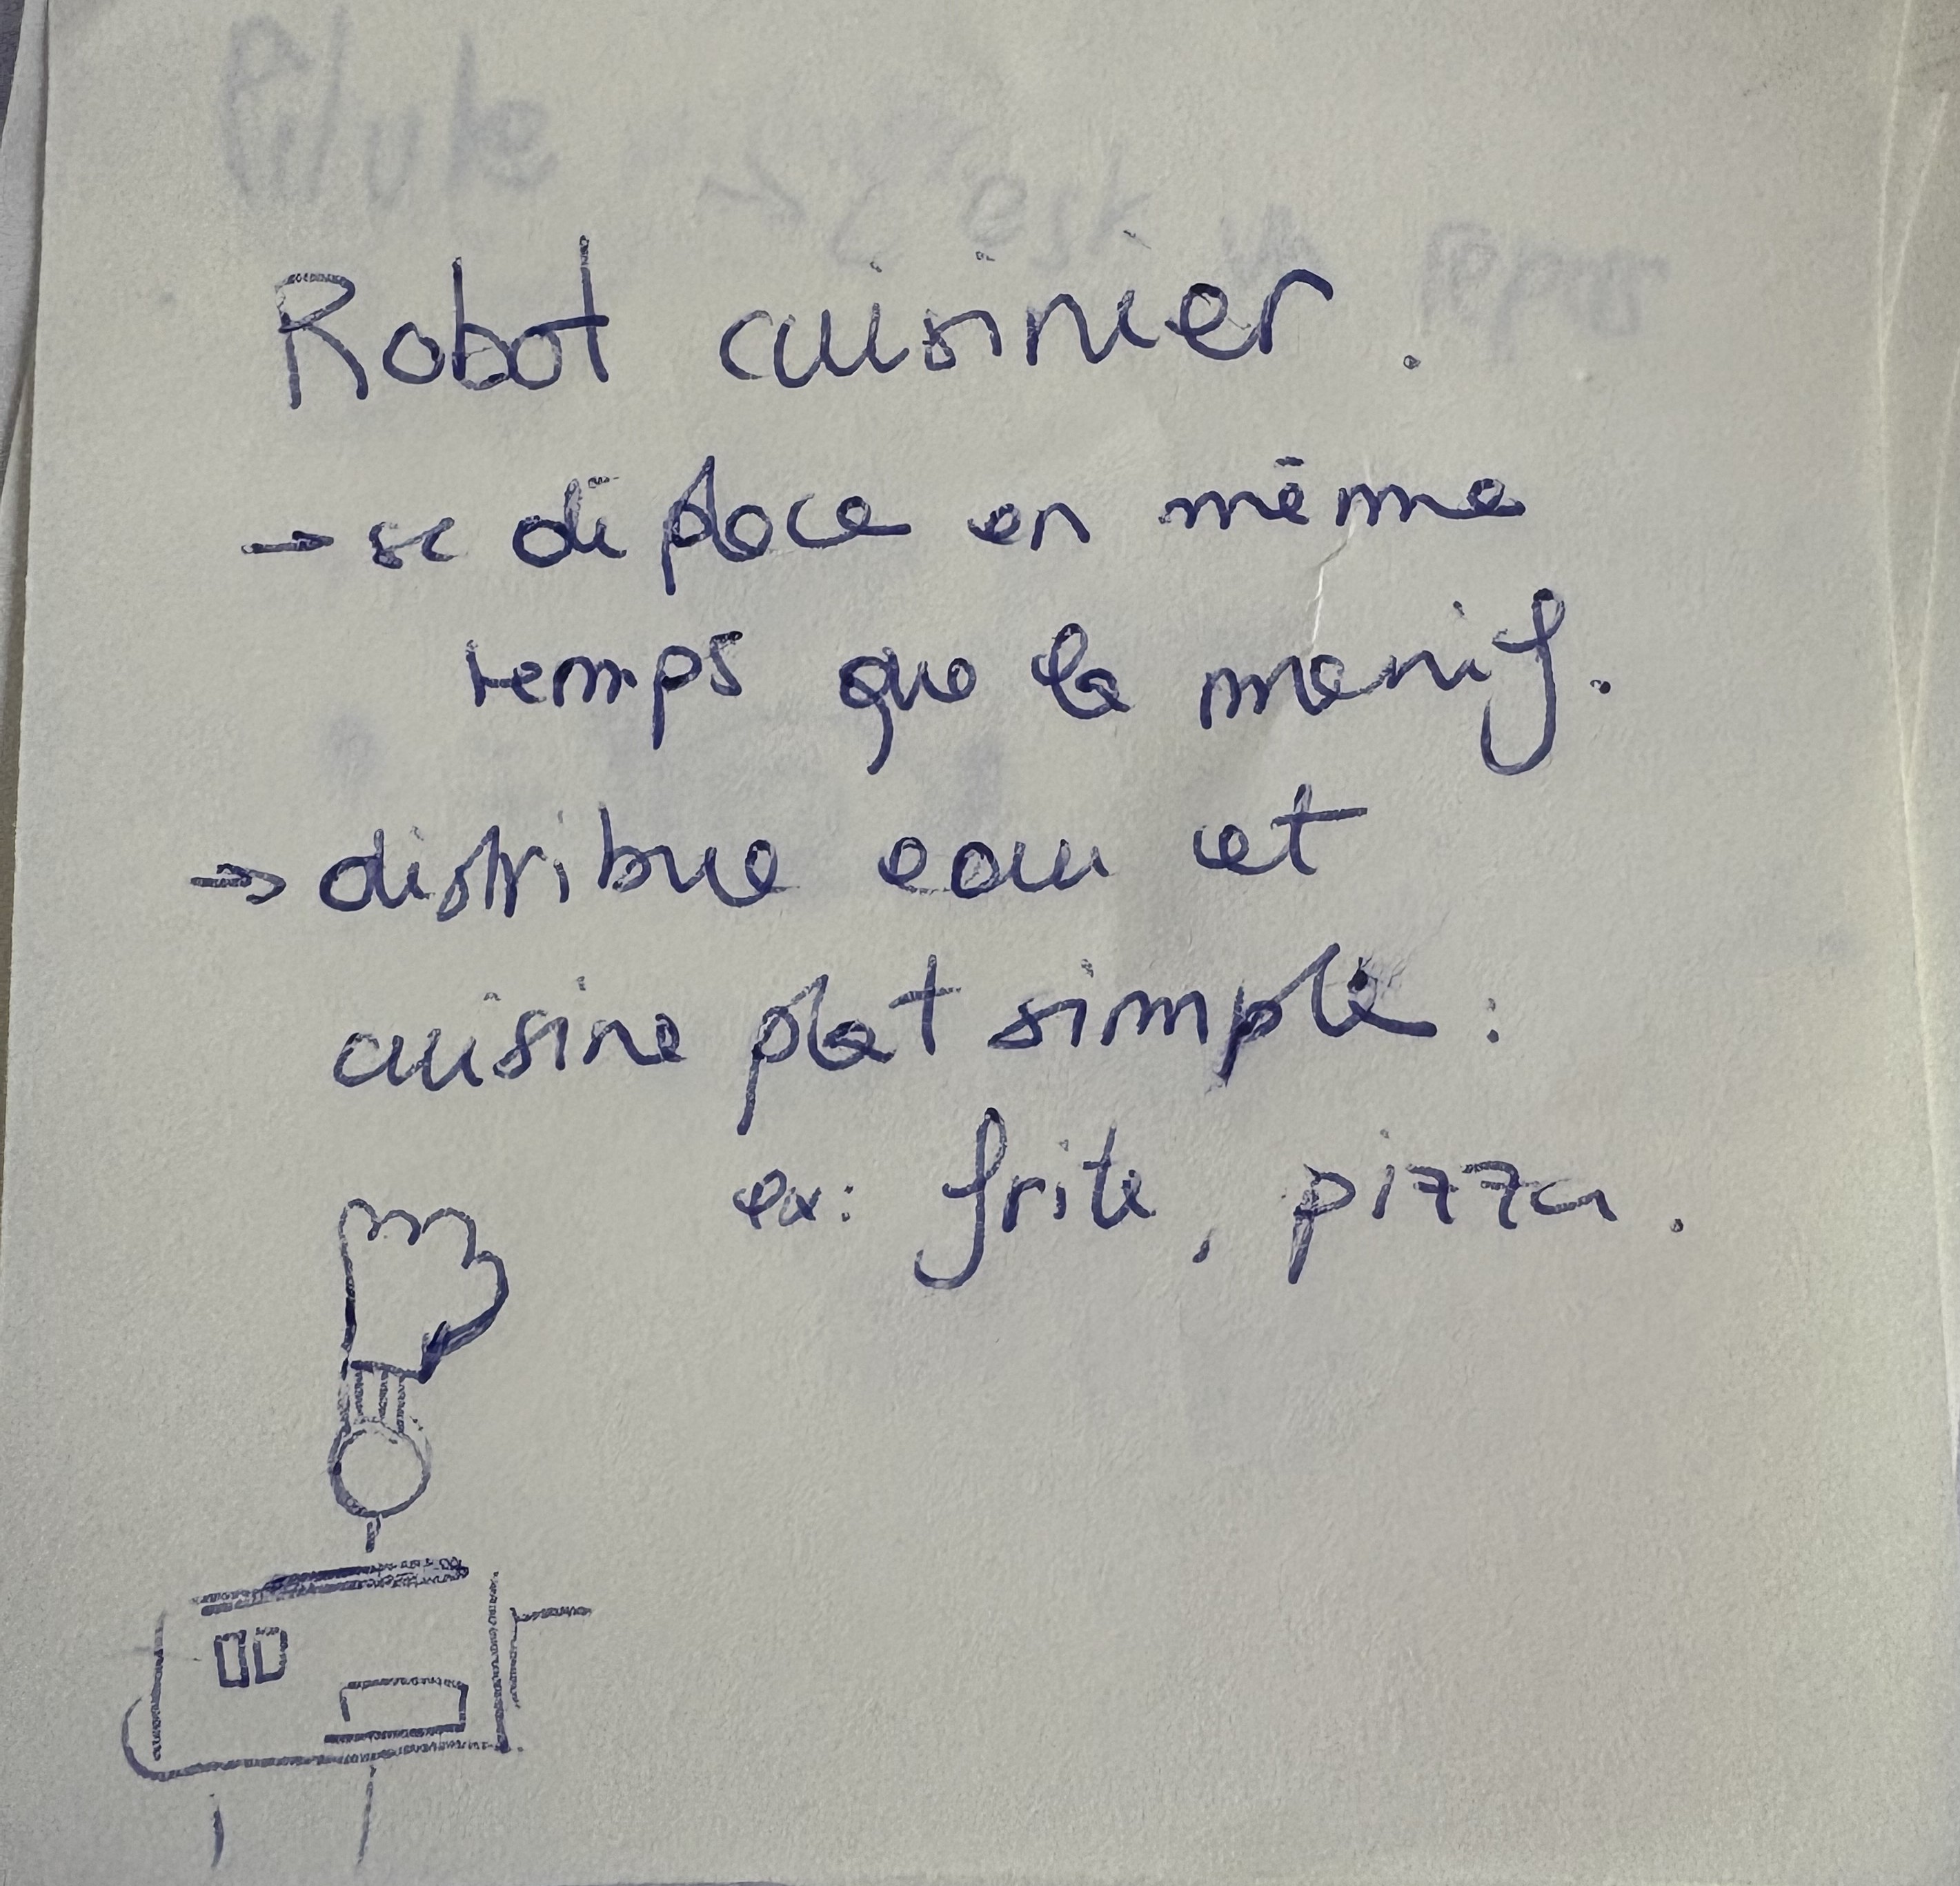 Robot cuisinier.
→ se déplace en même
temps que la manif.
→ distribue eau et
cuisine plat simple :
ex: frite, pizza.